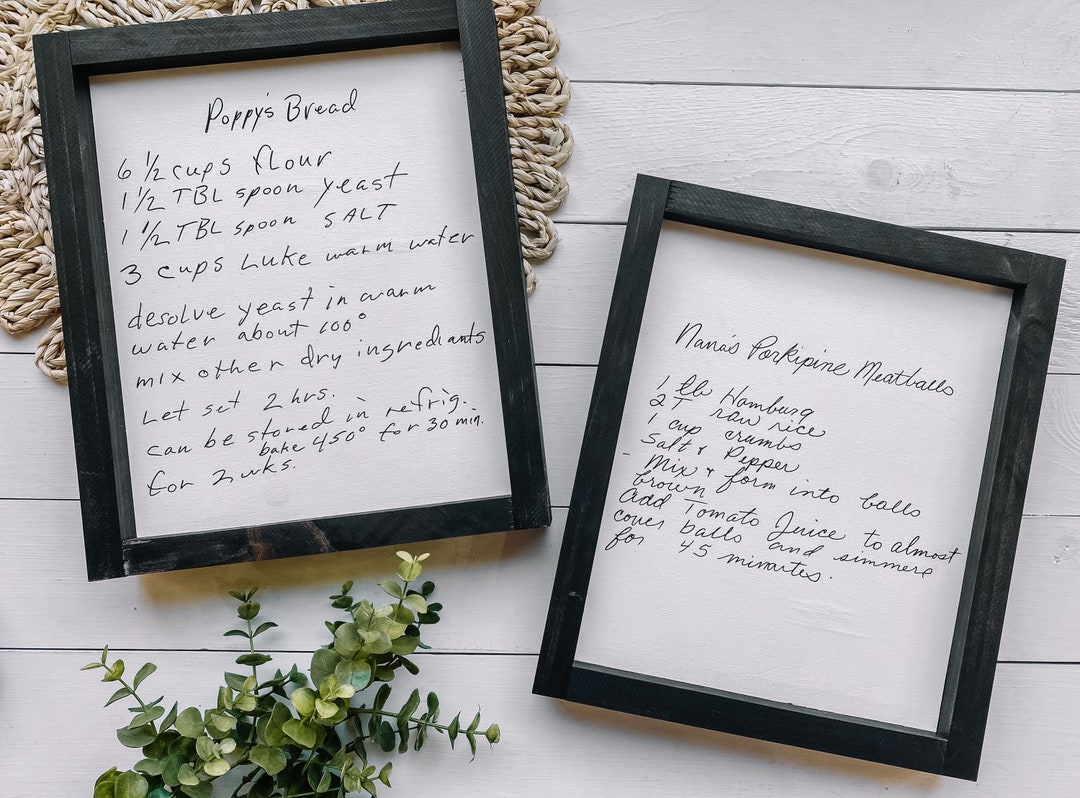 Poppy's Bread
6 1/2 cups flour
1 1/2 TBL spoon yeast
1 1/2 TBL spoon SALT
3 cups Luke warm water
desolve yeast in warm
water about 100°
mix other dry ingrediants
Let set 2 hrs.
can be stored in refrig.
bake 450° for 30 min.
for 2 wks.
Nana's Porkipine Meatballs
1 lb Hamburg
2T raw rice
1 cup crumbs
Salt & Pepper
- Mix & form into balls
brown
Add Tomato Juice to almost
cover balls and simmere
for 45 minartes.